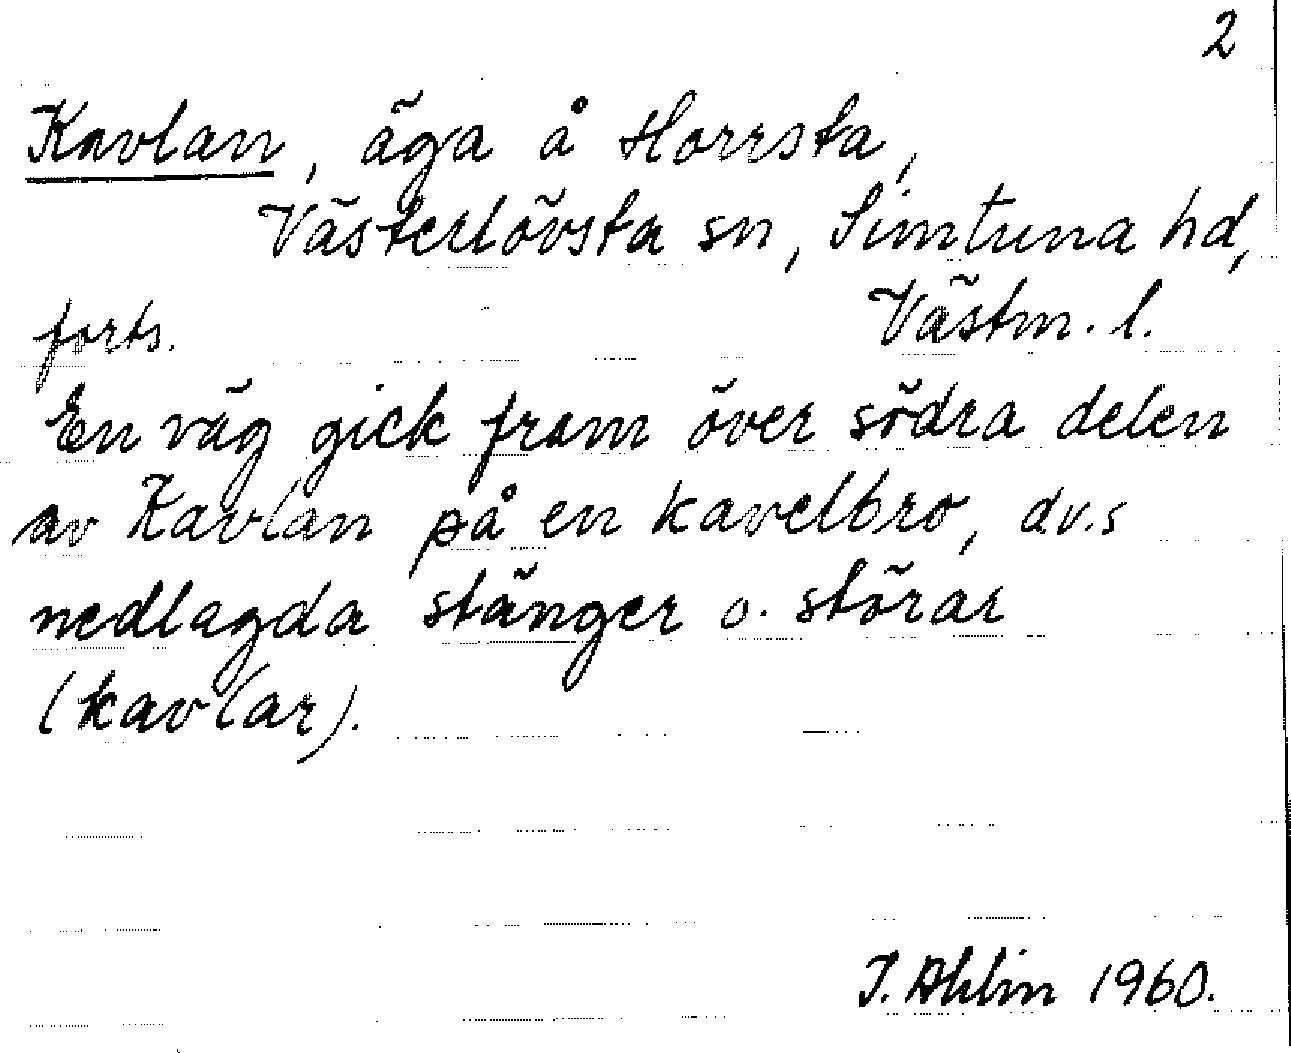 2
Kavlan, äga å Horrsta,
Västerlövsta sn, Simtuna hd,
forts. Västm. l.
En väg gick fram över södra delen
av Kavlan på en kavelbro, dv.s
nedlagda stänger o. störar
(kavlar).
I. Ahlin 1960.